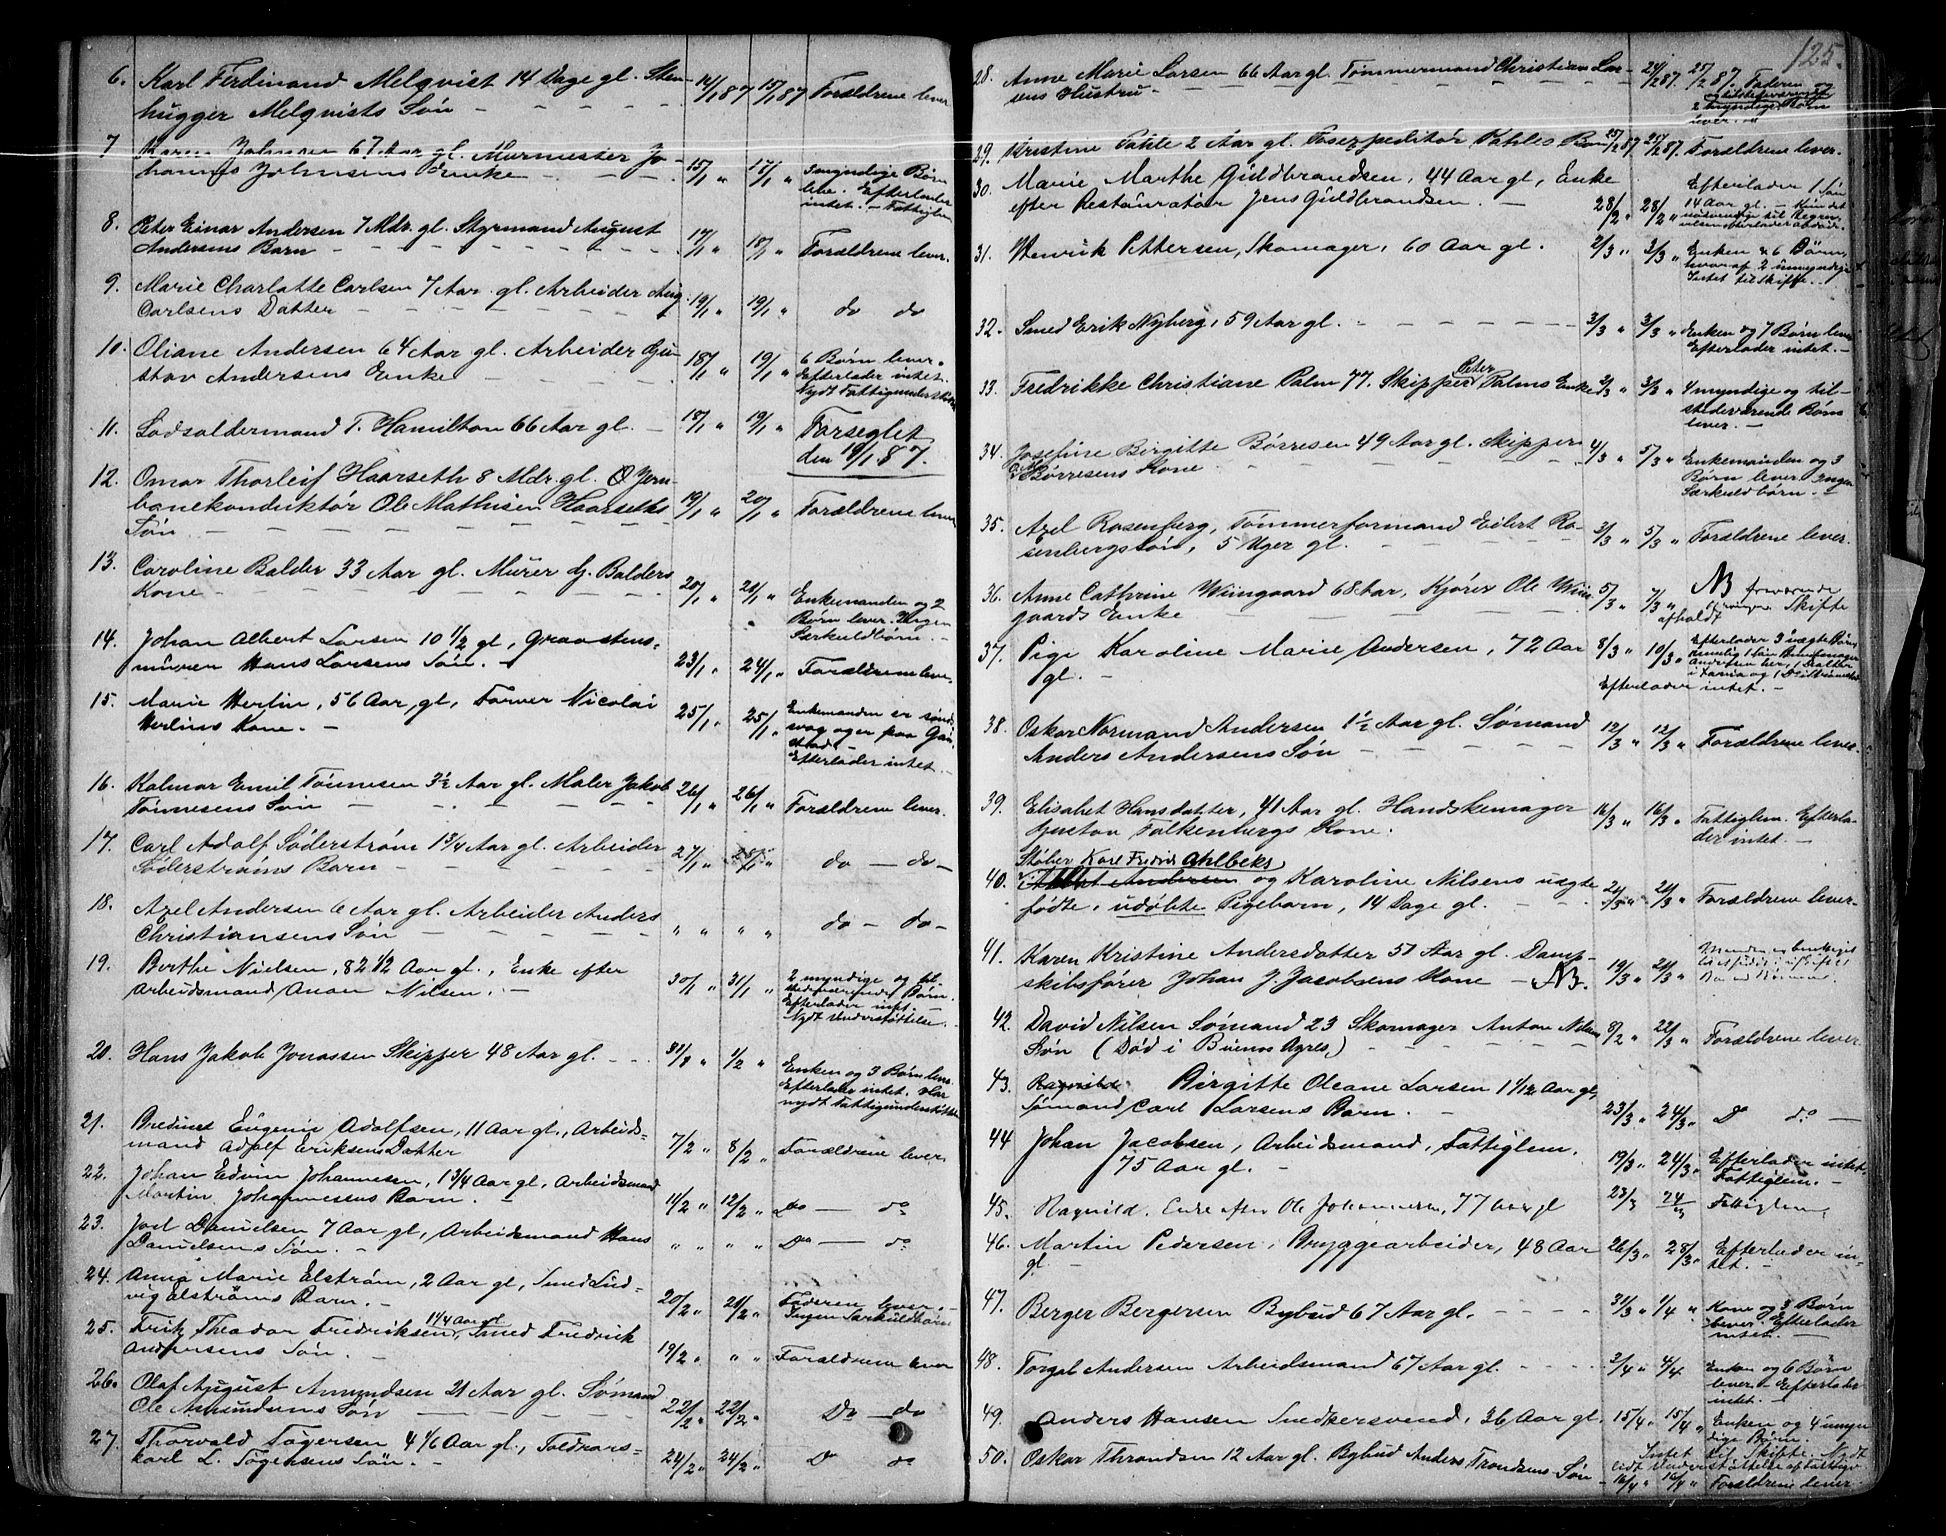 6. Karl Ferdinand Melqvist 14 Dage gl. Sten- 14/1 87 15/1 87 Forældrene lever
hugger Melqvists Søn
7 Karen Johnsen 67 Aar gl. Murmester Jo-
hannes Johnsens Enke 15/1 " 17/1 " Børn
leve. Efterlader
intet. - Fattiglem
8. Peter Einar Andersen 7 Mdr. gl. Styrmand August
Andersens Barn 17/1 " 18/1 " Forældrene lever.
9. Marie Charlotte Carlsen 7 Aar gl. Arbeider Aug.
Carlsens Datter 19/1 " 19/1 " do do
10. Oliane Andersen 64 Aar gl. Arbeider Gu-
stav Andersens Enke 18/1 " 19/1 " 6 Børn lever.
Efterlader intet.
Nydt Fattigunderst
11. Lodsoldermand T. Hamilton 66 Aar gl. 18/1 " 19/1 " Forseglet
den 19/1 87.
12. Omar Thorleif Haarseth 8 Mdr. gl. Jern-
banekonduktør Ole Mathisen Haarseths 19/1 " 20/1 " Forældrene lever
Søn
13. Caroline Balder 33 Aar gl. Murer Balders
Kone 20/1 " 21/1 " Enkemanden og 2
Børn lever. Ingen
Særkuldbørn.
14. Johan Albert Larsen 10 1/2 gl, Graastens-
murer Hans Larsens Søn. 23/1 " 24/1 " Forældrene lever
15. Marie Herlin, 56 Aar, gl, Farver Nicolai
Herlins Kone. 25/1 " 25/1 " Enkemanden er sinds
svag og er paa Gau
stad
Efterlader intet.
16. Kalmar Emil Tønnesen 3 1/2 Aar gl. Maler Jakob
Tønnesens Søn 26/1 " 26/1 " Forældrene lever.
17. Carl Adolf Söderstrøm 1 3/4 Aar gl. Arbeider
Söderstrøms Barn 27/1 " 28/1 " do - do -
18. Axel Andersen 6 Aar gl. Arbeider Anders
Christiansens Søn " " " " do - do -
19. Berthe Nielsen, 82 1/2 Aar gl., Enke efter
Arbeidsmand Anon Nilsen. 30/1 " 31/1 " 2 myndige og til-
stedeværende Børn.
Efterlader intet.
Nydt Understøttelse.
20. Hans Jakob Jonassen Skipper 48 Aar gl. 31/1 " 1/2 " Enken og 3 Børn leve.
Efterlader intet. Har
nydt Fattigunderstøttelse
21. Eugenie Adolfsen, 11 Aar gl., Arbeids-
mand Adolf Eriksens Datter 7/2 " 8/2 " Forældrene lever.
22. Johan Edvin Johannesen, 1 3/4 Aar gl, Arbeidsmand
Martin Johannessens Barn. 11/2 " 12/2 " Do - do
23. Joel Danielsen 7 Aar gl, Arbeidsmand Hans
Danielsens Søn. " " " " Do - do
24. Anna Marie Elstrøm, 2 Aar gl, Smed Lud-
vig Elstrøms Barn. 20/2 " 21/2 " Faderen lever.
Ingen Særkuldbørn
25. Fritz Theodor Fredriksen, 1 1/4 Aar gl Smed Fredrik
Andersens Søn. 19/2 " " " Forældrene lever
26. Olaf August Amundsen 21 Aar gl. Sømand
Ole Amundsens Søn 22/2 " 22/2 " Do - do
27. Thorvald Tøgersen 4 1/6 Aar gl., Toldvars-
karl L. Tøgersens Søn. 24/2 " 24/2 " D do
125.
28. Anne Marie Larsen 66 Aar gl. Tømmermand Christian Lar- 24/2 87. 25/2 87. Faderen og
sens Hustru. 2 myndige Børn
lever.
29. Kristine Pahle 2 Aar gl. Pahles Barn 25/2 87 25/2 87. Forældrene lever.
30. Marie Marthe Guldbrandsen, 44 Aar gl, Enke
efter Restauratør Jens Guldbrandsen. 28/2 " 28/2 " Efterlader 1 Søn
14 Aar gl.
31. Henrik Pettersen, Skomager, 60 Aar gl. 2/3 " 3/3 " Enken & 6 Børn,
hvoraf 2 umyndige
Intet til Skifte.
32. Smed Erik Nyberg, 59 Aar gl. 3/3 " 3/3 " Enken og 7 Børn lever
Efterlader intet.
33. Fredrikke Christiane Palm 77. Skipper Peter Palms Enke 2/3 " 3/3 " 4 myndige og til-
stedeværende Børn
lever.
34. Josefine Birgitte Børresen 49 Aar gl. Skipper
Børresens Kone 4/3 " 5/3 " Enkemanden og 3
Børn lever. Ingen
Særkuldbørn.
35. Axel Rosenberg, Tømmerformand Eilert Ro-
senbergs søn, 5 Uger gl. 3/3 " 5/3 " Forældrene lever.
36. Anne Cathrine Wiingaard 68 Aar, Kjører Ole Wiin-
gaards Enke 5/3 " 7/3 " NB
Skifte
afholdt
37. Pige Karoline Marie Andersen, 72 Aar
gl. 8/3 " 10/3 " Efterlader 3 uægte Børn,
nemlig 1 Søn
Andersen her, 1 Datter
Efterlader intet.
38. Oskar Normand Andersen 1 1/2 Aar gl. Sømand
Anders Andersens Søn 12/3 " 12/3 " Forældrene lever.
39. Elisabet Hansdatter, 41 Aar gl. Handskemager
Gustav Falkenbergs Kone. 16/3 " 16/3 " Fattiglem. Efterla-
der intet.
Støber Karl Fredrik Ahlbeks
40. Andersen og Karoline Nilsens uægte
fødte, udøbte Pigebarn, 14 Dage gl. 20/3 " 21/3 " Forældrene lever.
41. Karen Kristine Andersdatter 51 Aar gl. Damp-
skibsfører Johan J. Jacobsens Kone - NB. 19/3 " 21/3 "
42. David Nilsen Sømand 23 Skomager Anton Nilsens
Søn (Død i Buenos Ayres) 8/2 " 22/3 " Forældrene lever.
43. Ragnild Birgitte Oleane Larsen 1 1/12 Aar gl,
Sømand Carl Larsens Barn. 23/3 " 24/3 " Do do -
44 Johan Jacobsen, Arbeidsmand, Fattiglem.
75 Aar gl. 19/3 " 24/3 " Efterlader intet.
Fattiglem.
45. Ragnild, Enke efter Ole Johannesen, 77 Aar gl 23/3 24/3 Fattiglem,
46. Martin Pedersen, Bryggearbeider, 48 Aar
gl. 26/3 " 28/3 " Efterlader in-
tet.
47. Berger Bergersen Bybud 67 Aar gl. 31/3 " 1/4 " Kone og 3 Børn
lever. Efterlader
intet.
48. Torgal Andersen Arbeidsmand 67 Aar gl. 2/4 " 4/4 Enken og 6 Børn
lever - Efterlader
intet.
49. Anders Hansen Snedkersvend, 36 Aar gl. 15/4 " 15/4 " Enken og 4 umyn-
dige Børn.
Intet til Skifte. Nydt
lidt Understøttelse af Fattigv.
50. Oskar Throndsen 12 Aar gl. Bybud Anders Trondsens Søn 16/4 " 16/4 " Forældrene lever